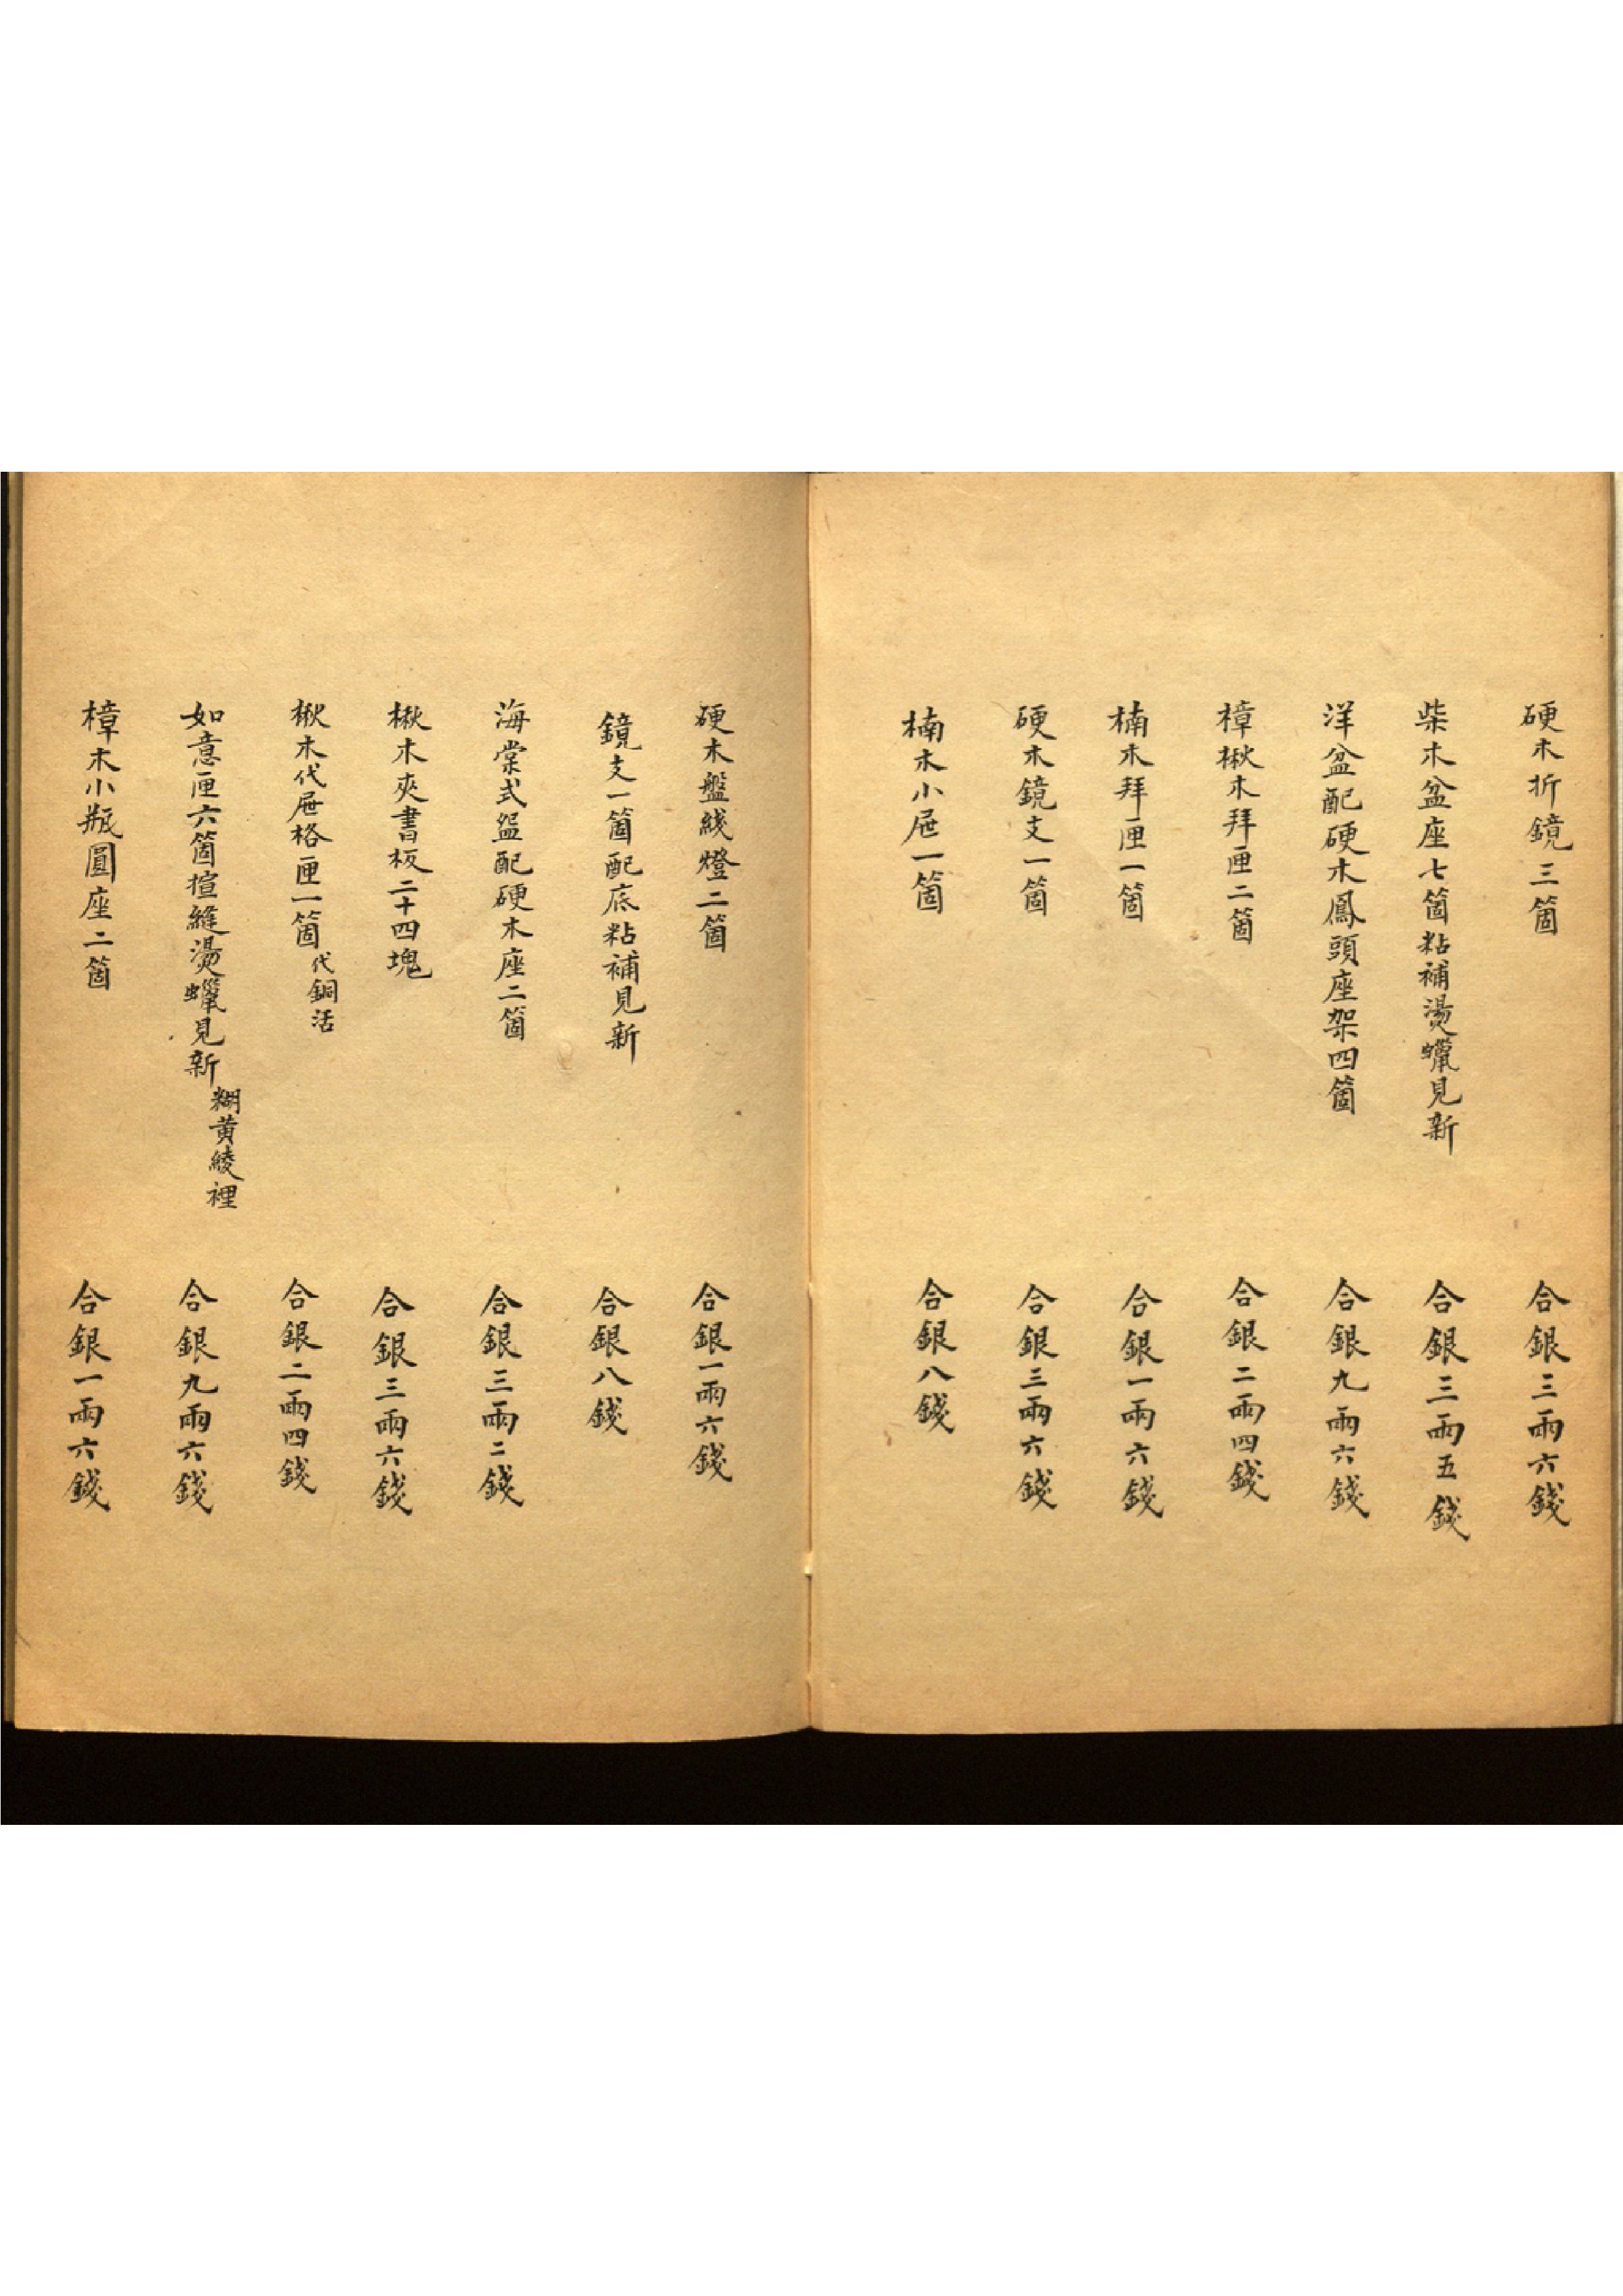 硬木折鏡三箇 合銀三兩六錢
柴木盆座七箇粘補燙蠟見新 合銀三兩五錢
洋盆配硬木鳳頭座架四箇 合銀九兩六錢
樟楸木拜匣二箇 合銀二兩四錢
楠木拜匣一箇 合銀一兩六錢
硬木鏡支一箇 合銀三兩六錢
楠木小屉一箇 合銀八錢
硬木盤綫燈二箇 合銀一兩六錢
鏡支一箇配底粘補見新 合銀八錢
海棠式盆配硬木座二箇 合銀三兩二錢
楸木夾書板二十四塊 合銀三兩六錢
楸木代屉格匣一箇代銅活 合銀二兩四錢
如意匣六箇揎縫燙蠟見新糊黃綾裡 合銀九兩六錢
樟木小瓶圓座二箇 合銀一兩六錢